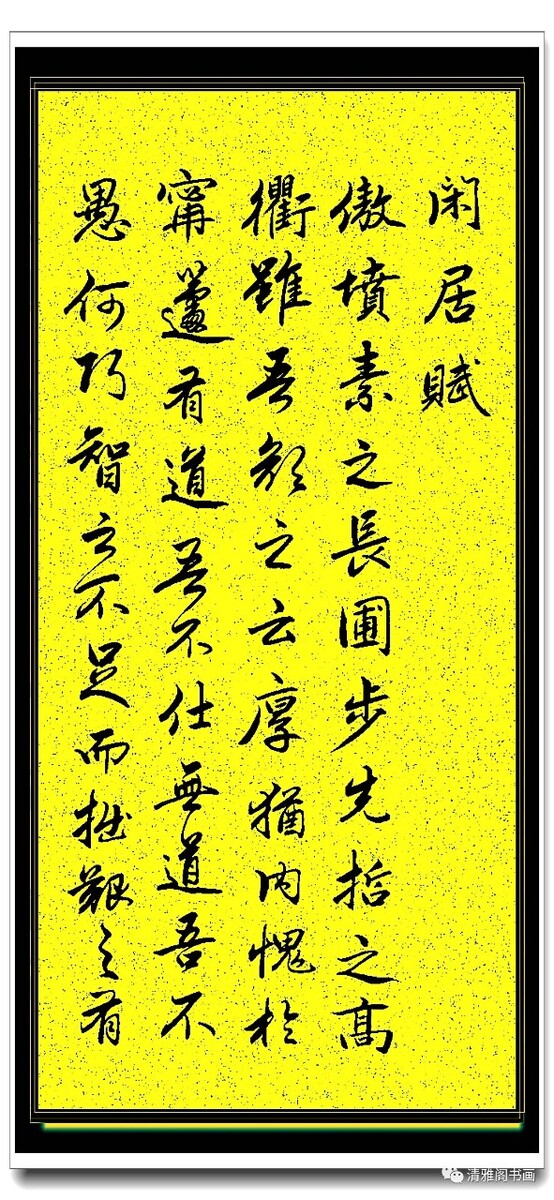 闲居赋
傲墳素之長圃步先哲之高
衢雖吾顔之云厚猶内愧於
甯蘧有道吾不仕無道吾不
愚何巧智之不足而拙艱之有
清雅阁书画